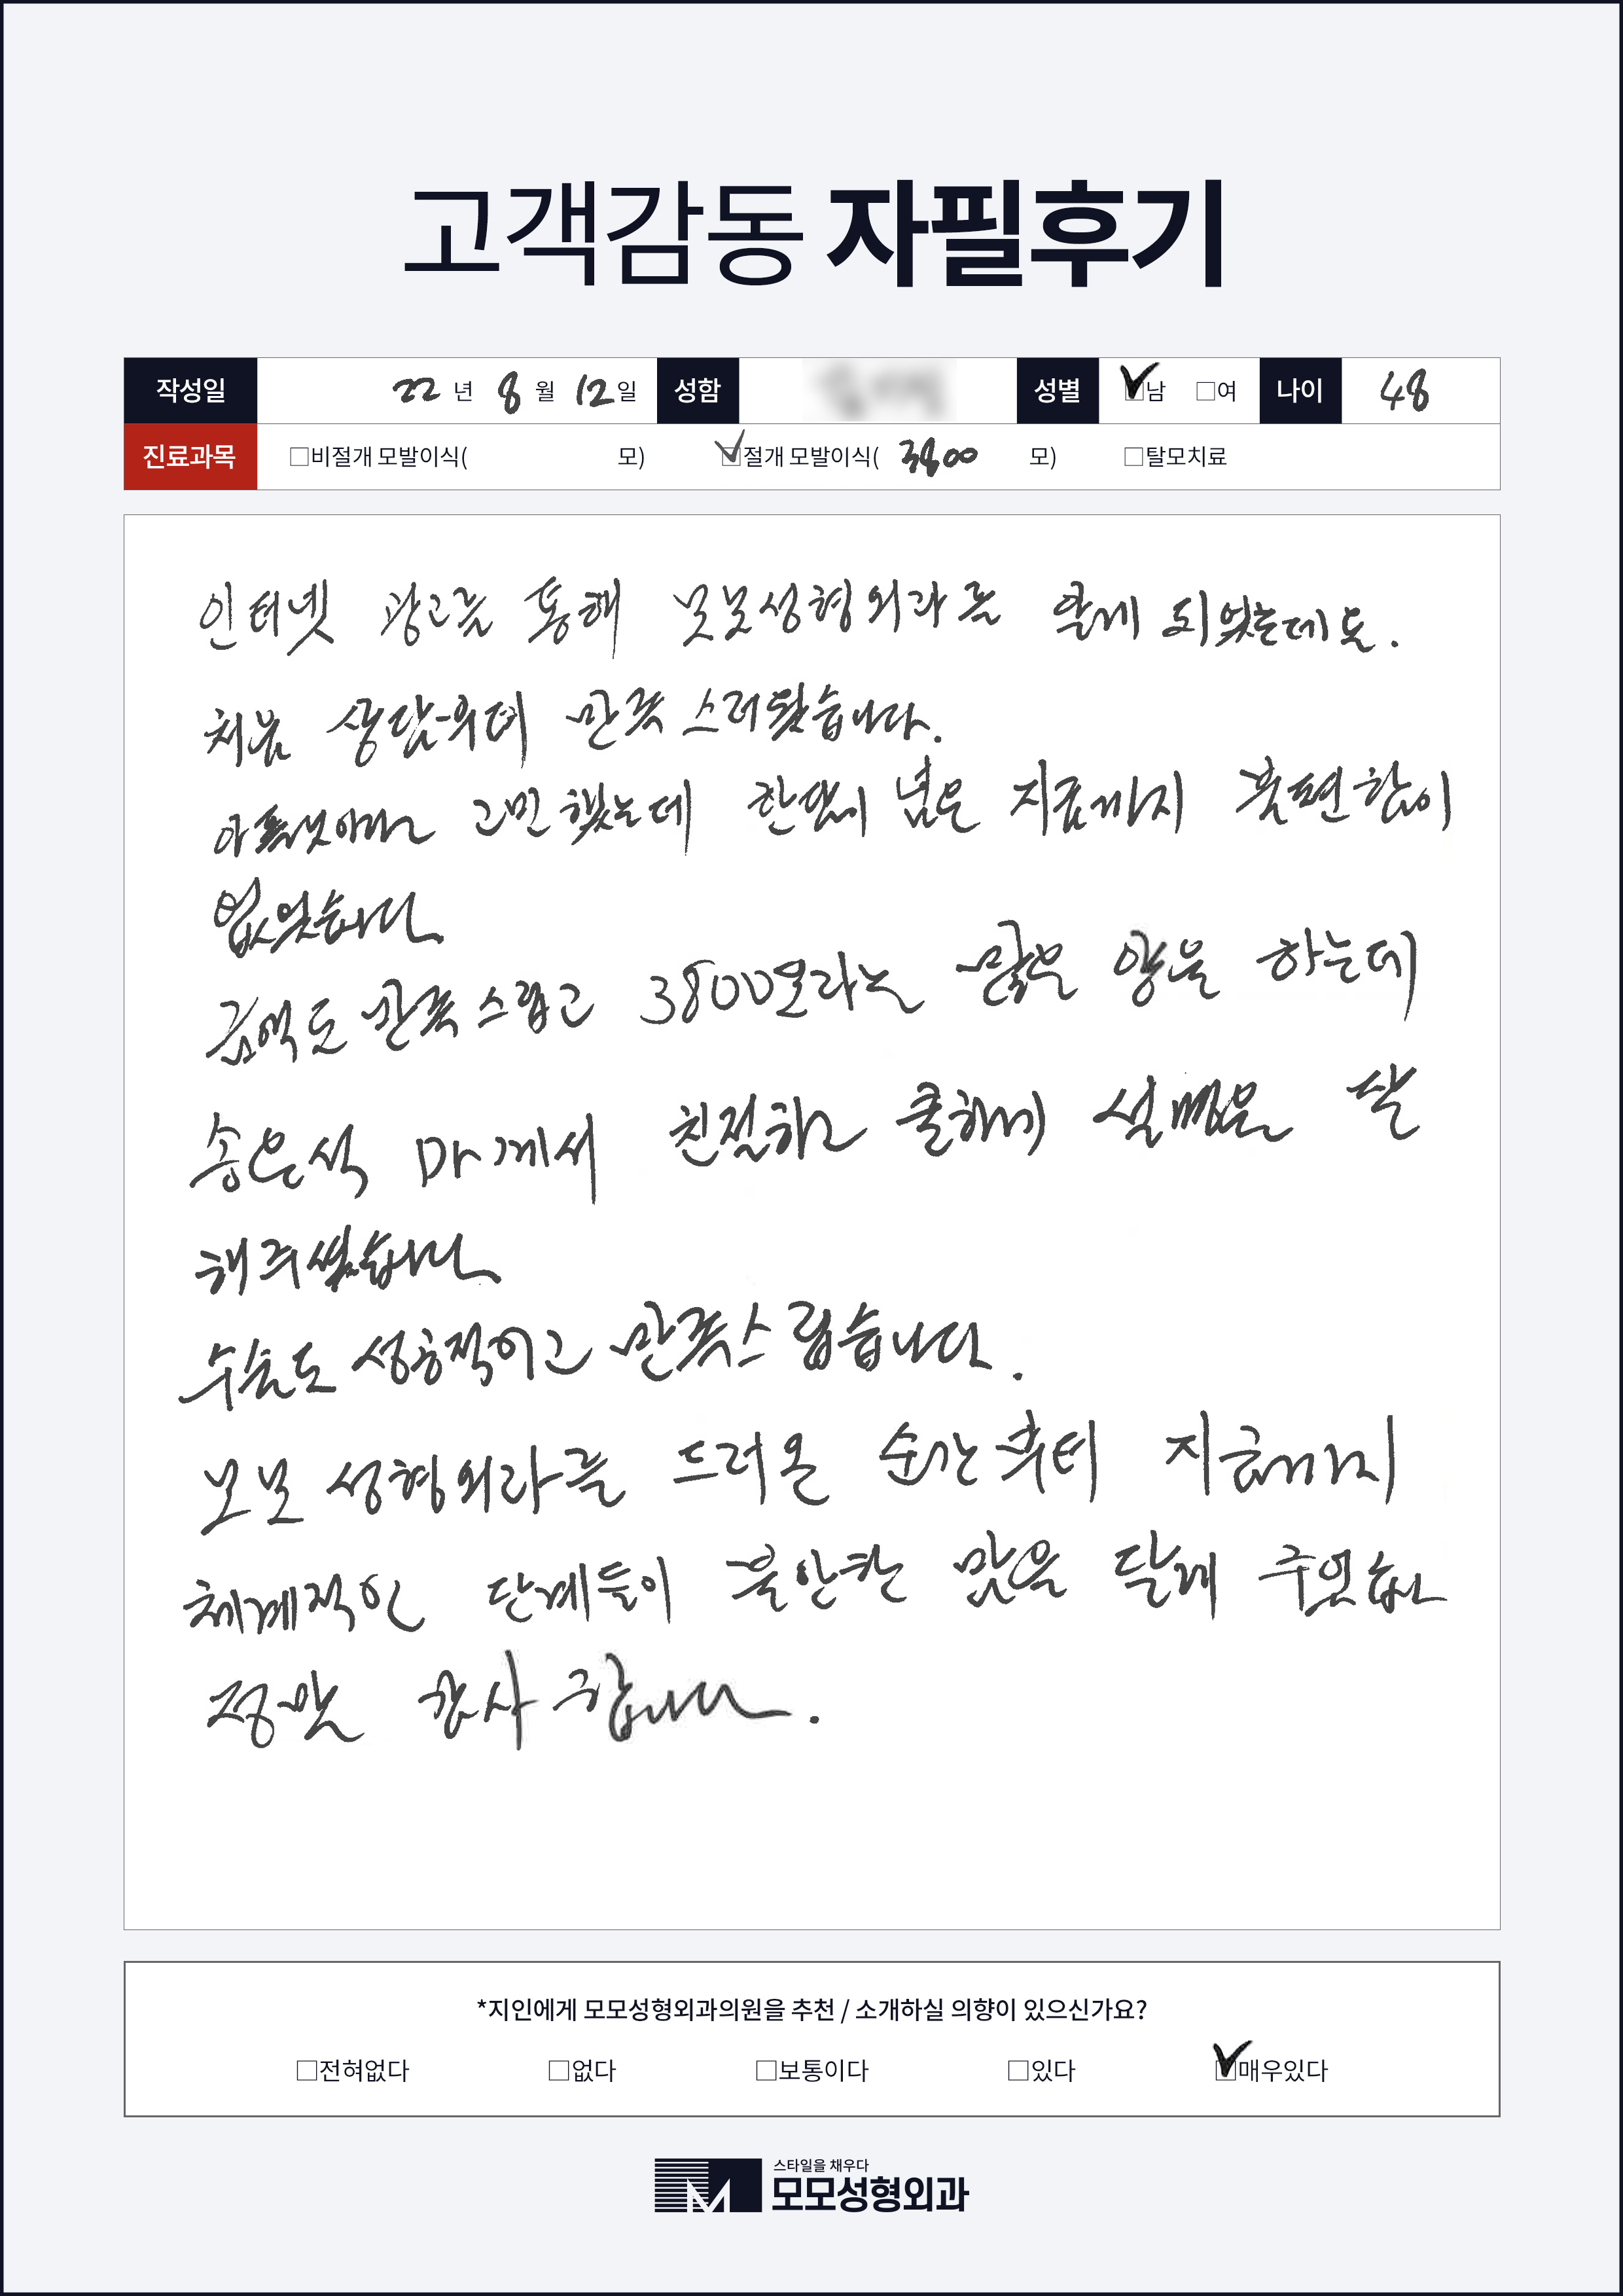 고객감동 자필후기
작성일 22 년 8 월 12 일 성함 성별 ☑남 □여 나이 48
진료과목 □비절개 모발이식( 모) ☑절개 모발이식( 3800 모) □탈모치료
인터넷 광고를 통해 모모성형외과를 알게 되었는데요.
처음 상담부터 만족스러웠습니다.
고민했는데 한달이 넘은 지금까지 불편함이
없었습니다
금액도 만족스럽고 3800모라는 많은 양을 하는데
송은석 Dr께서 친절하고 쿨하게 설명을 잘
해주셨습니다
수술도 성공적이고 만족스럽습니다.
모모성형외과를 드러온 순간부터 지금까지
체계적인 단계들이 불안한 맘을 달래 주었습니다
정말 감사합니다.
*지인에게 모모성형외과의원을 추천 / 소개하실 의향이 있으신가요?
□전혀없다 □없다 □보통이다 □있다 ☑매우있다
스타일을 채우다
모모성형외과